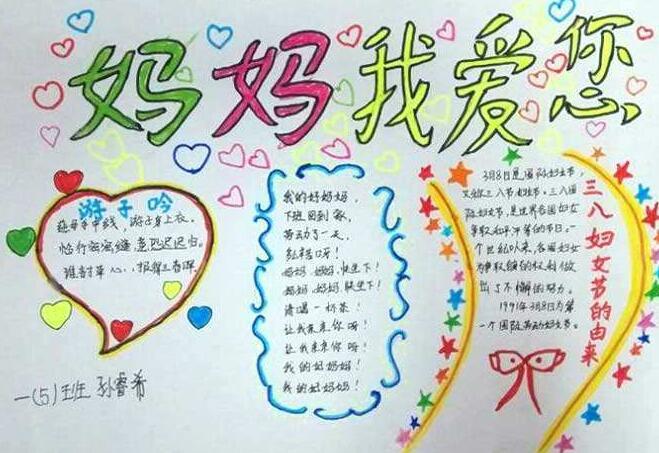 妈妈我爱您
游子吟
慈母手中线，游子身上衣。
临行密密缝，意恐迟迟归。
谁言寸草心，报得三春晖。
一(5)班 孙睿希
我的好妈妈，
下班回到家，
劳动了一天，
多辛苦呀！
妈妈，妈妈，快坐下！
妈妈，妈妈，快坐下！
请喝一杯茶！
让我亲亲你呀！
让我亲亲你呀！
我的好妈妈！
我的好妈妈！
三八妇女节的由来
3月8日是国际妇女节，
又称三八节、妇女节、三八国
际妇女节，是世界各国妇女
争取和平平等的节日。一
个世纪以来，各国妇女
为争取她们的权利做
出了不懈的努力。
1991年3月8日为第
一个国际劳动妇女节。